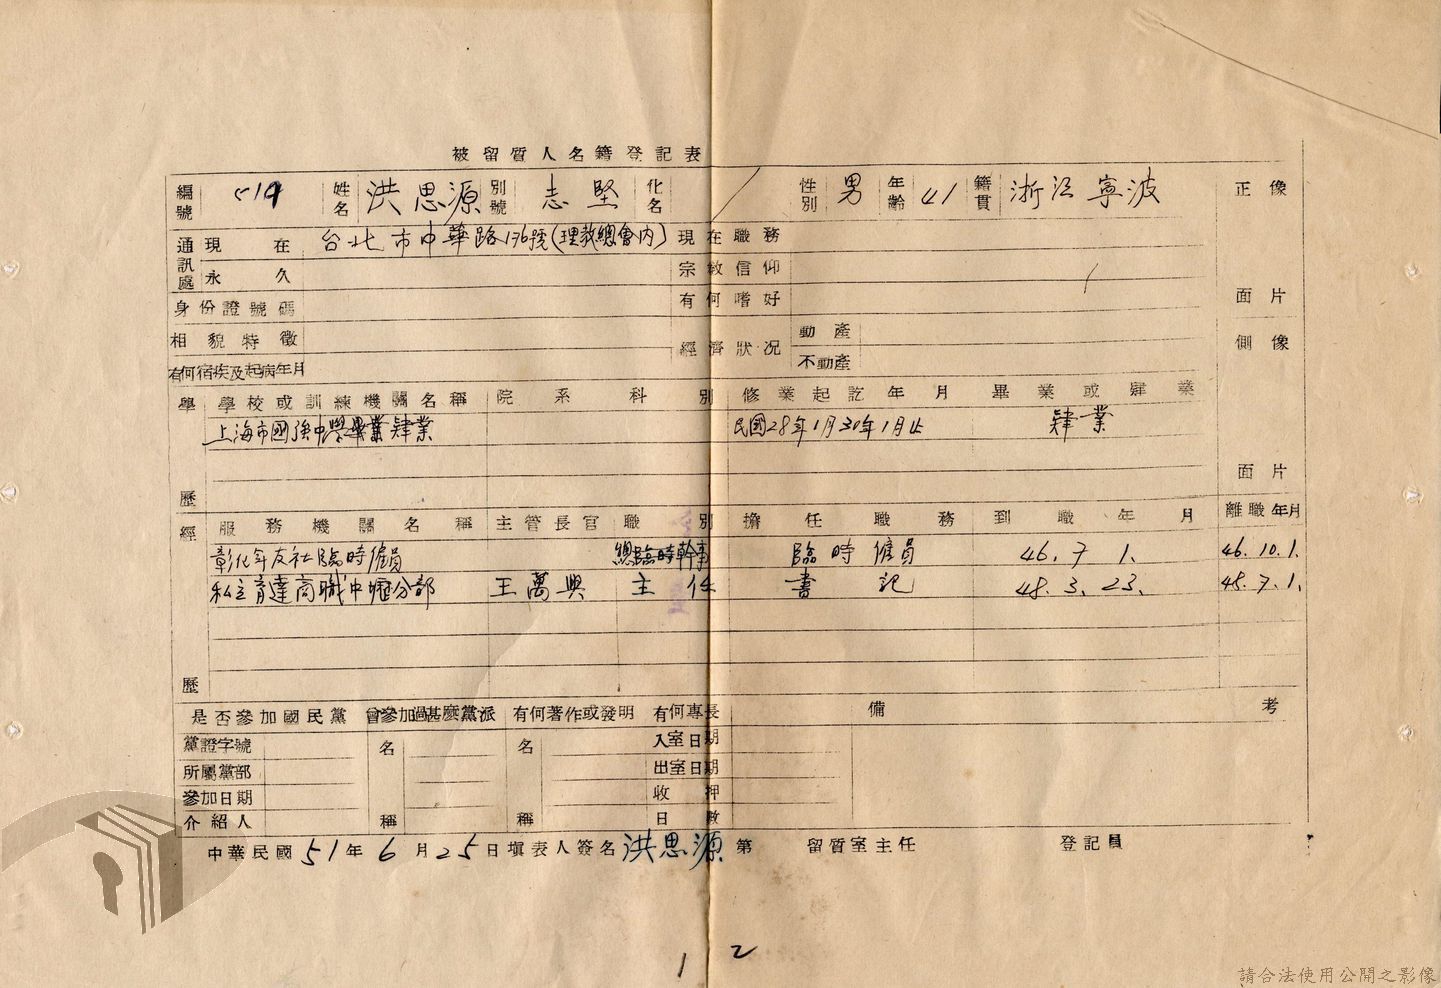 被留質人名籍登記表
編號 519 姓名 洪思源 別號 志堅 化名 性別 男 年齡 41 籍貫 浙江寧波 正像
通訊處 現在 台北市中華路176號(理教總會內) 現在職務
永久 宗教信仰
身份證號碼 有何嗜好 面片
相貌特徵 經濟狀況 動產 側像
有何宿疾及起病年月 不動產
學歷 學校或訓練機關名稱 院系科別 修業起訖年月 畢業或肄業
上海市國強中學畢業肄業 民國28年1月30年1月止 肄業
面片
經歷 服務機關名稱 主管長官 職別 擔任職務 到職年月 離職年月
彰化年友社臨時僱員 總臨時幹事 臨時僱員 46.7.1. 46.10.1.
私立育達商職中壢分部 王萬興 主任 書記 48.3.23. 48.7.1.
是否參加國民黨 曾參加過甚麼黨派 有何著作或發明 有何專長 備考
黨證字號 名稱 名稱 入室日期
所屬黨部 出室日期
參加日期 收押
介紹人 日數
中華民國51年6月25日填表人簽名洪思源 第 留質室主任 登記員
1 2
請合法使用公開之影像